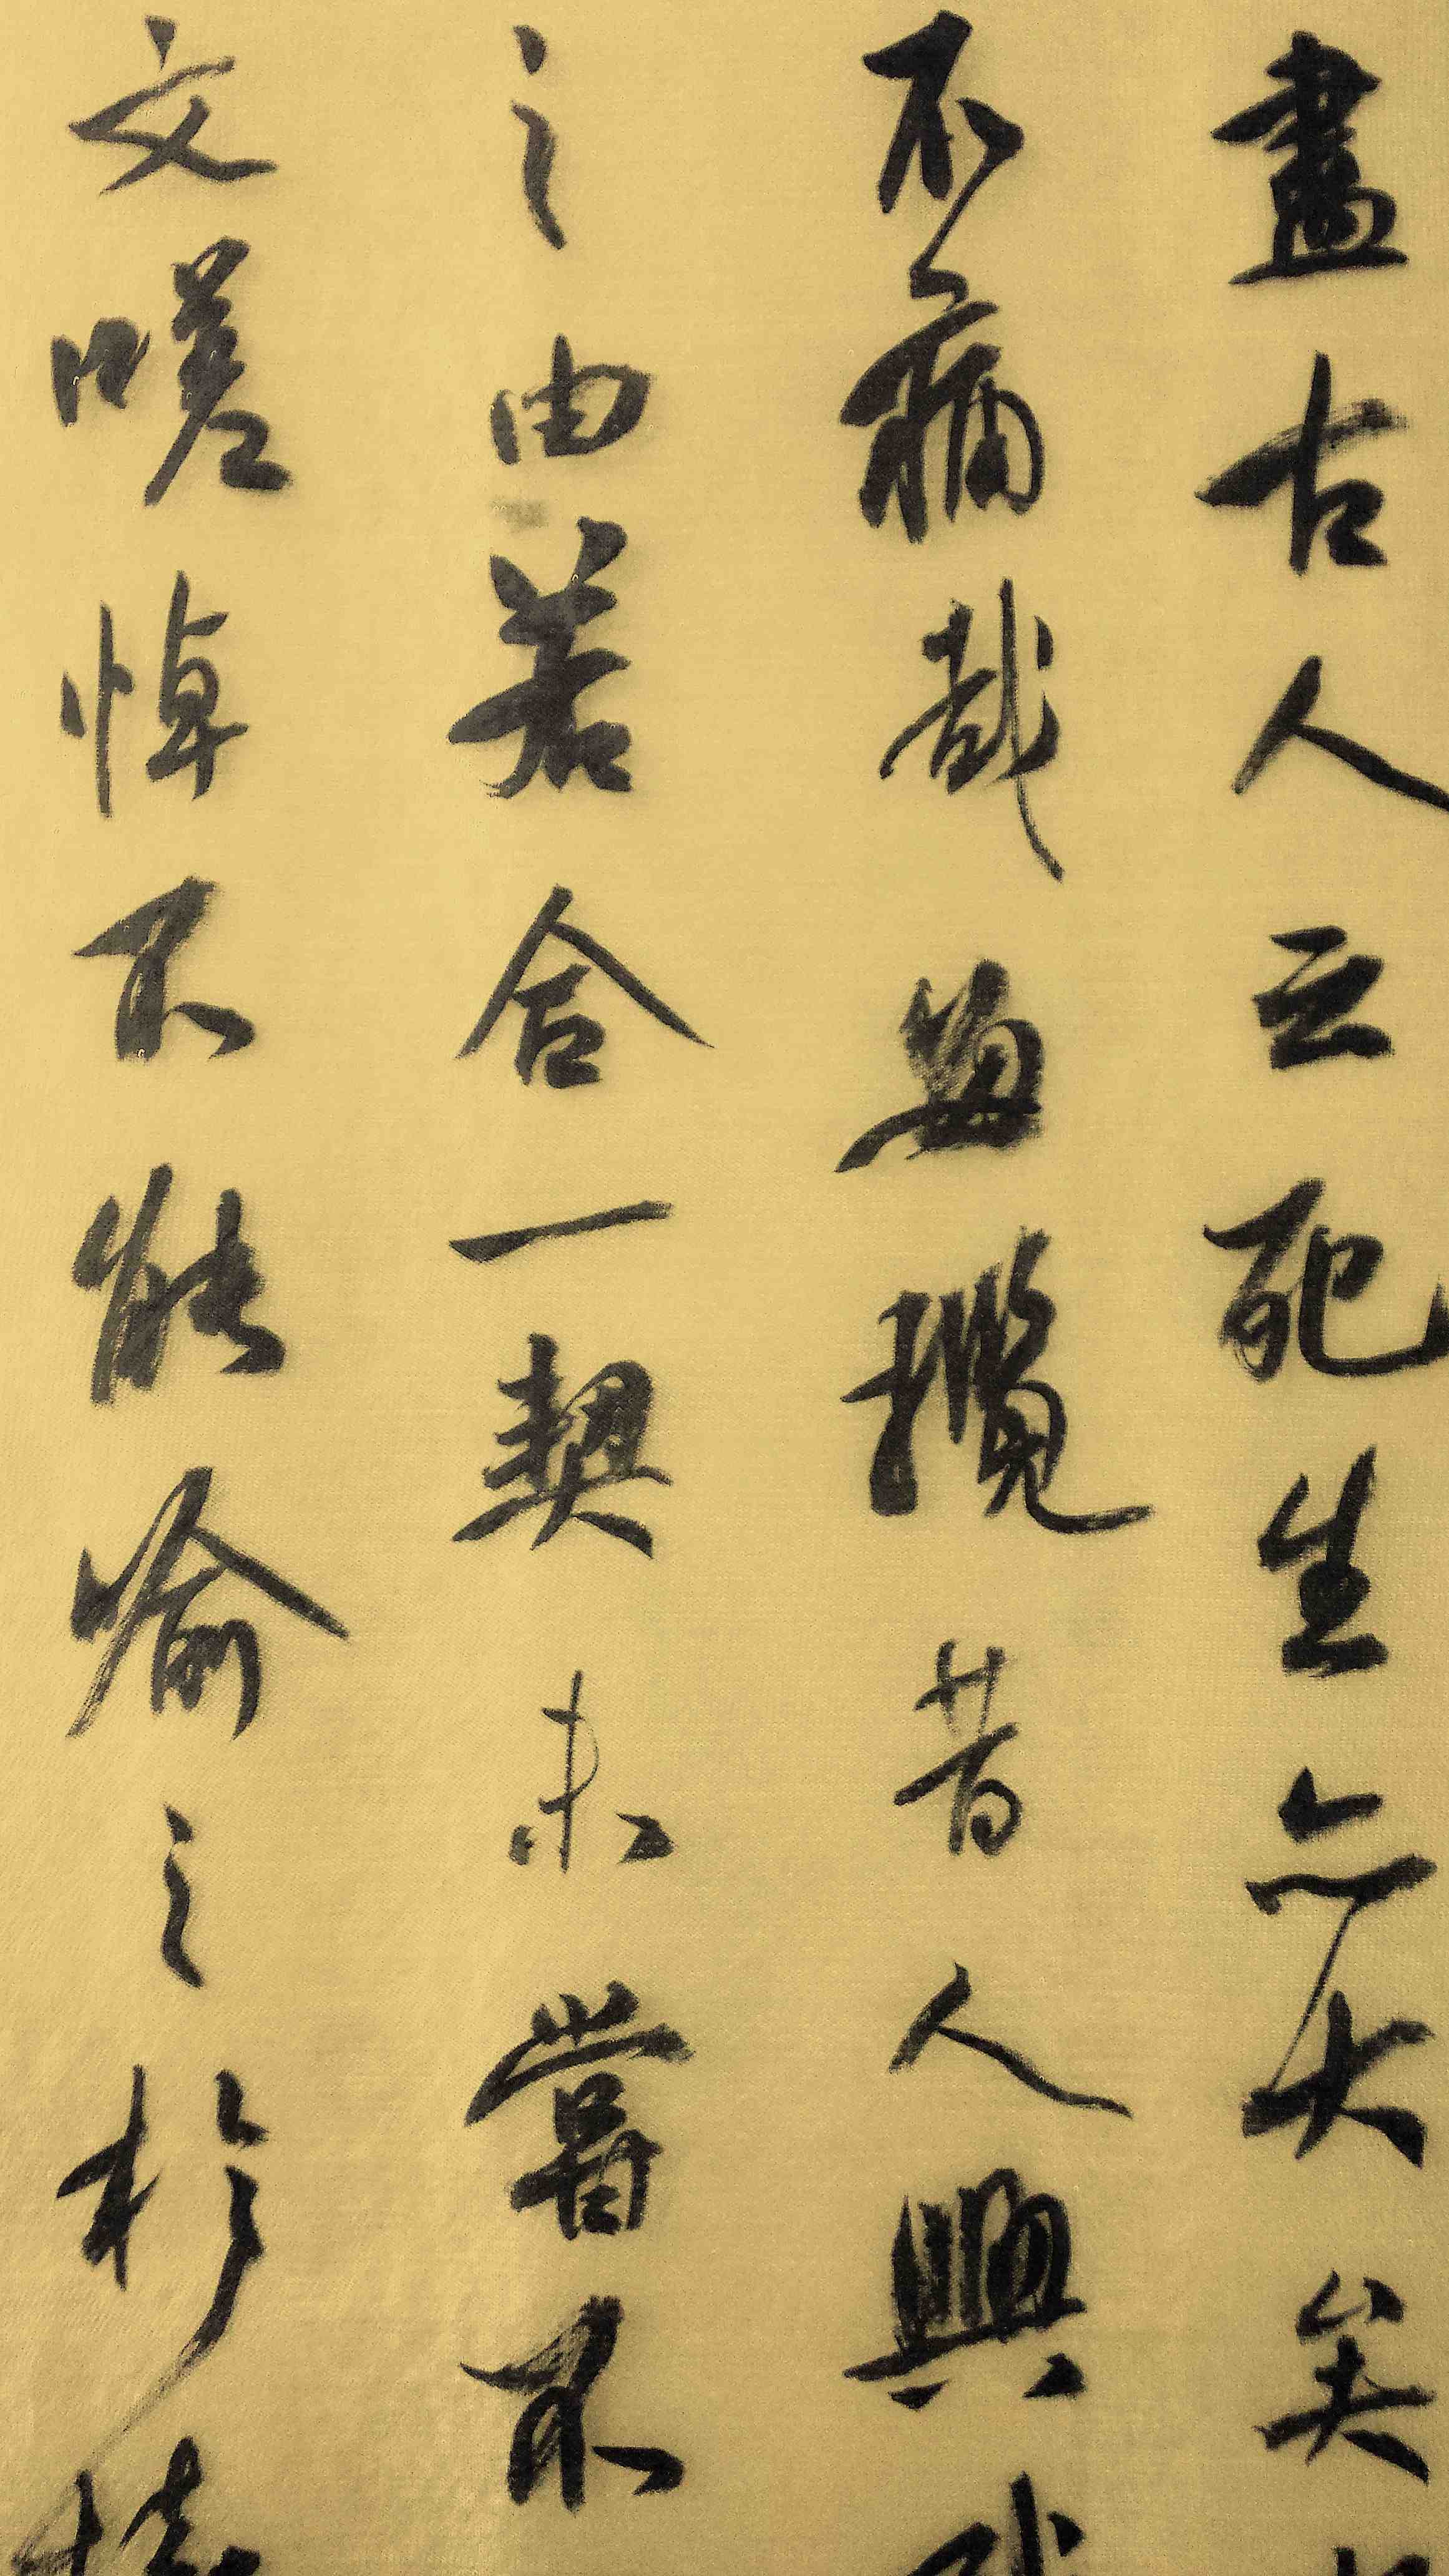 盡古人云死生亦大矣
不痛哉每攬昔人興感
之由若合一契未嘗不
文嗟悼不能喻之於懷